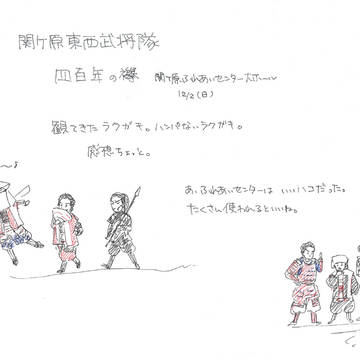 関ケ原東西武将隊
四百年の絆 関ケ原ふれあいセンター大ホール
12/2(日)
観てきたラクガキ。ハンパないラクガキ。
感想ちょっと。
あ、ふれあいセンターは いいハコだった。
たくさん使われるといいね。